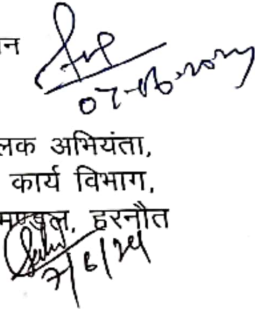 न
07-06-2024
लक अभियंता,
कार्य विभाग,
मण्डल, हरनौत
7/6/24